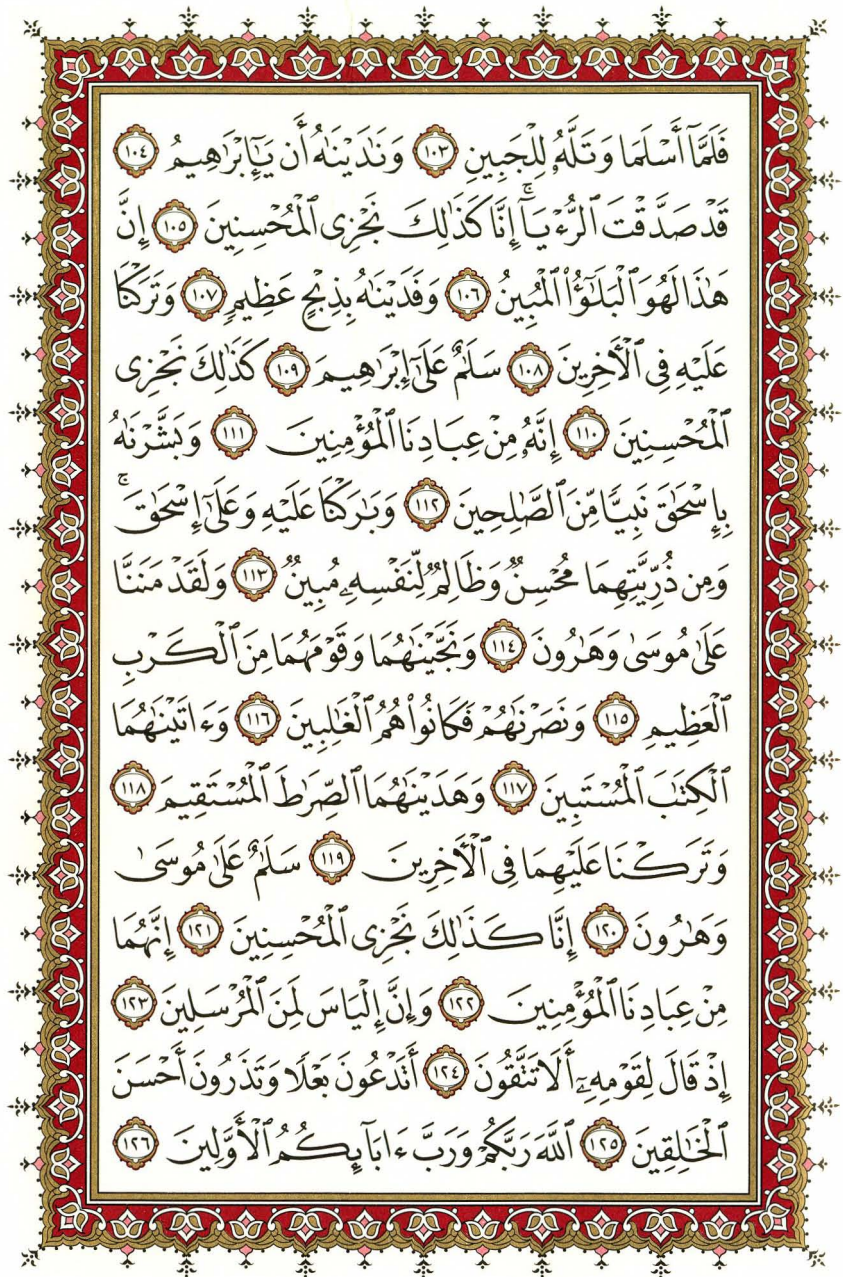 فَلَمَّآ أَسْلَمَا وَتَلَّهُۥ لِلْجَبِينِ ١٠٣ وَنَٰدَيْنَٰهُ أَن يَٰٓإِبْرَٰهِيمُ ١٠٤
قَدْ صَدَّقْتَ ٱلرُّءْيَآ ۚ إِنَّا كَذَٰلِكَ نَجْزِى ٱلْمُحْسِنِينَ ١٠٥ إِنَّ
هَٰذَا لَهُوَ ٱلْبَلَٰٓؤُا۟ ٱلْمُبِينُ ١٠٦ وَفَدَيْنَٰهُ بِذِبْحٍ عَظِيمٍ ١٠٧ وَتَرَكْنَا
عَلَيْهِ فِى ٱلْأَخِرِينَ ١٠٨ سَلَٰمٌ عَلَىٰٓ إِبْرَٰهِيمَ ١٠٩ كَذَٰلِكَ نَجْزِى
ٱلْمُحْسِنِينَ ١١٠ إِنَّهُۥ مِنْ عِبَادِنَا ٱلْمُؤْمِنِينَ ١١١ وَبَشَّرْنَٰهُ
بِإِسْحَٰقَ نَبِيًّا مِّنَ ٱلصَّٰلِحِينَ ١١٢ وَبَٰرَكْنَا عَلَيْهِ وَعَلَىٰٓ إِسْحَٰقَ ۚ
وَمِن ذُرِّيَّتِهِمَا مُحْسِنٌ وَظَالِمٌ لِّنَفْسِهِۦ مُبِينٌ ١١٣ وَلَقَدْ مَنَنَّا
عَلَىٰ مُوسَىٰ وَهَٰرُونَ ١١٤ وَنَجَّيْنَٰهُمَا وَقَوْمَهُمَا مِنَ ٱلْكَرْبِ
ٱلْعَظِيمِ ١١٥ وَنَصَرْنَٰهُمْ فَكَانُوا۟ هُمُ ٱلْغَٰلِبِينَ ١١٦ وَءَاتَيْنَٰهُمَا
ٱلْكِتَٰبَ ٱلْمُسْتَبِينَ ١١٧ وَهَدَيْنَٰهُمَا ٱلصِّرَٰطَ ٱلْمُسْتَقِيمَ ١١٨
وَتَرَكْنَا عَلَيْهِمَا فِى ٱلْأَخِرِينَ ١١٩ سَلَٰمٌ عَلَىٰ مُوسَىٰ
وَهَٰرُونَ ١٢٠ إِنَّا كَذَٰلِكَ نَجْزِى ٱلْمُحْسِنِينَ ١٢١ إِنَّهُمَا
مِنْ عِبَادِنَا ٱلْمُؤْمِنِينَ ١٢٢ وَإِنَّ إِلْيَاسَ لَمِنَ ٱلْمُرْسَلِينَ ١٢٣
إِذْ قَالَ لِقَوْمِهِۦٓ أَلَا تَتَّقُونَ ١٢٤ أَتَدْعُونَ بَعْلًا وَتَذَرُونَ أَحْسَنَ
ٱلْخَٰلِقِينَ ١٢٥ ٱللَّهَ رَبَّكُمْ وَرَبَّ ءَابَآئِكُمُ ٱلْأَوَّلِينَ ١٢٦